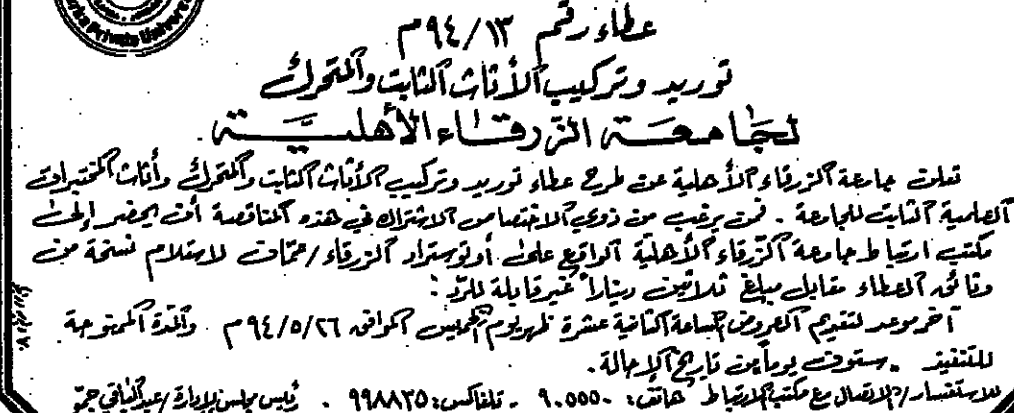 Zarka Private University
عطاء رقم ٩٤/١٣م
توريد وتركيب الأثاث الثابت والمتحرك
لجامعة الزرقاء الأهلية
تعلن جامعة الزرقاء الأهلية عن طرح عطاء توريد وتركيب الأثاث الثابت والمتحرك وأثاث المختبرات
العلمية الثابت للجامعة . فمن يرغب من ذوي الاختصاص الاشتراك في هذه المناقصة أن يحضر إلى
مكتب ارتباط جامعة الزرقاء الأهلية الواقع على أوتوستراد الزرقاء / عمان لاستلام نسخة من
وثائق العطاء مقابل مبلغ ثلاثين ديناراً غير قابلة للرد :
آخر موعد لتقديم العروض الساعة الثانية عشرة ظهر يوم الخميس الموافق ٩٤/٥/٢٦م والمدة الممنوحة
للتنفيذ . ستون يوماً من تاريخ الإحالة .
للاستفسار / الاتصال مع مكتب الارتباط هاتف : ٩٠٥٥٥٠ ـ تلفاكس : ٩٩٨٨٣٥ . رئيس مجلس الإدارة / عبدالباقي جمو